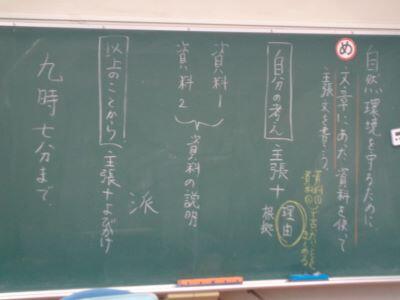 め
自然環境を守るために
文章にあった資料を使って
主張文を書こう。
自分の考え
主張+
理由
根拠
資料1
資料2
資料の説明
派
以上のことから
主張+よびかけ
九時七分まで